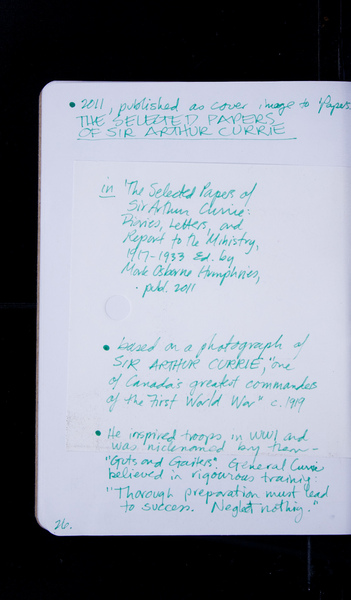 • 2011, published as cover image to 'Papers.
THE SELECTED PAPERS
OF SIR ARTHUR CURRIE
in 'The Selected Papers of
Sir Arthur Currie:
Diaries, Letters, and
Report to the Ministry,
1917-1933 Ed. by
Mark Osborne Humphries,
· pub. 2011
• based on a photograph of
SIR ARTHUR CURRIE, "one
of Canada's greatest commanders
of the First World War" c. 1919
• He inspired troops in WWI and
was nicknamed by them -
"Guts and Gaiters". General Currie
believed in rigourous training:
"Thorough preparation must lead
to success. Neglect nothing."
26.